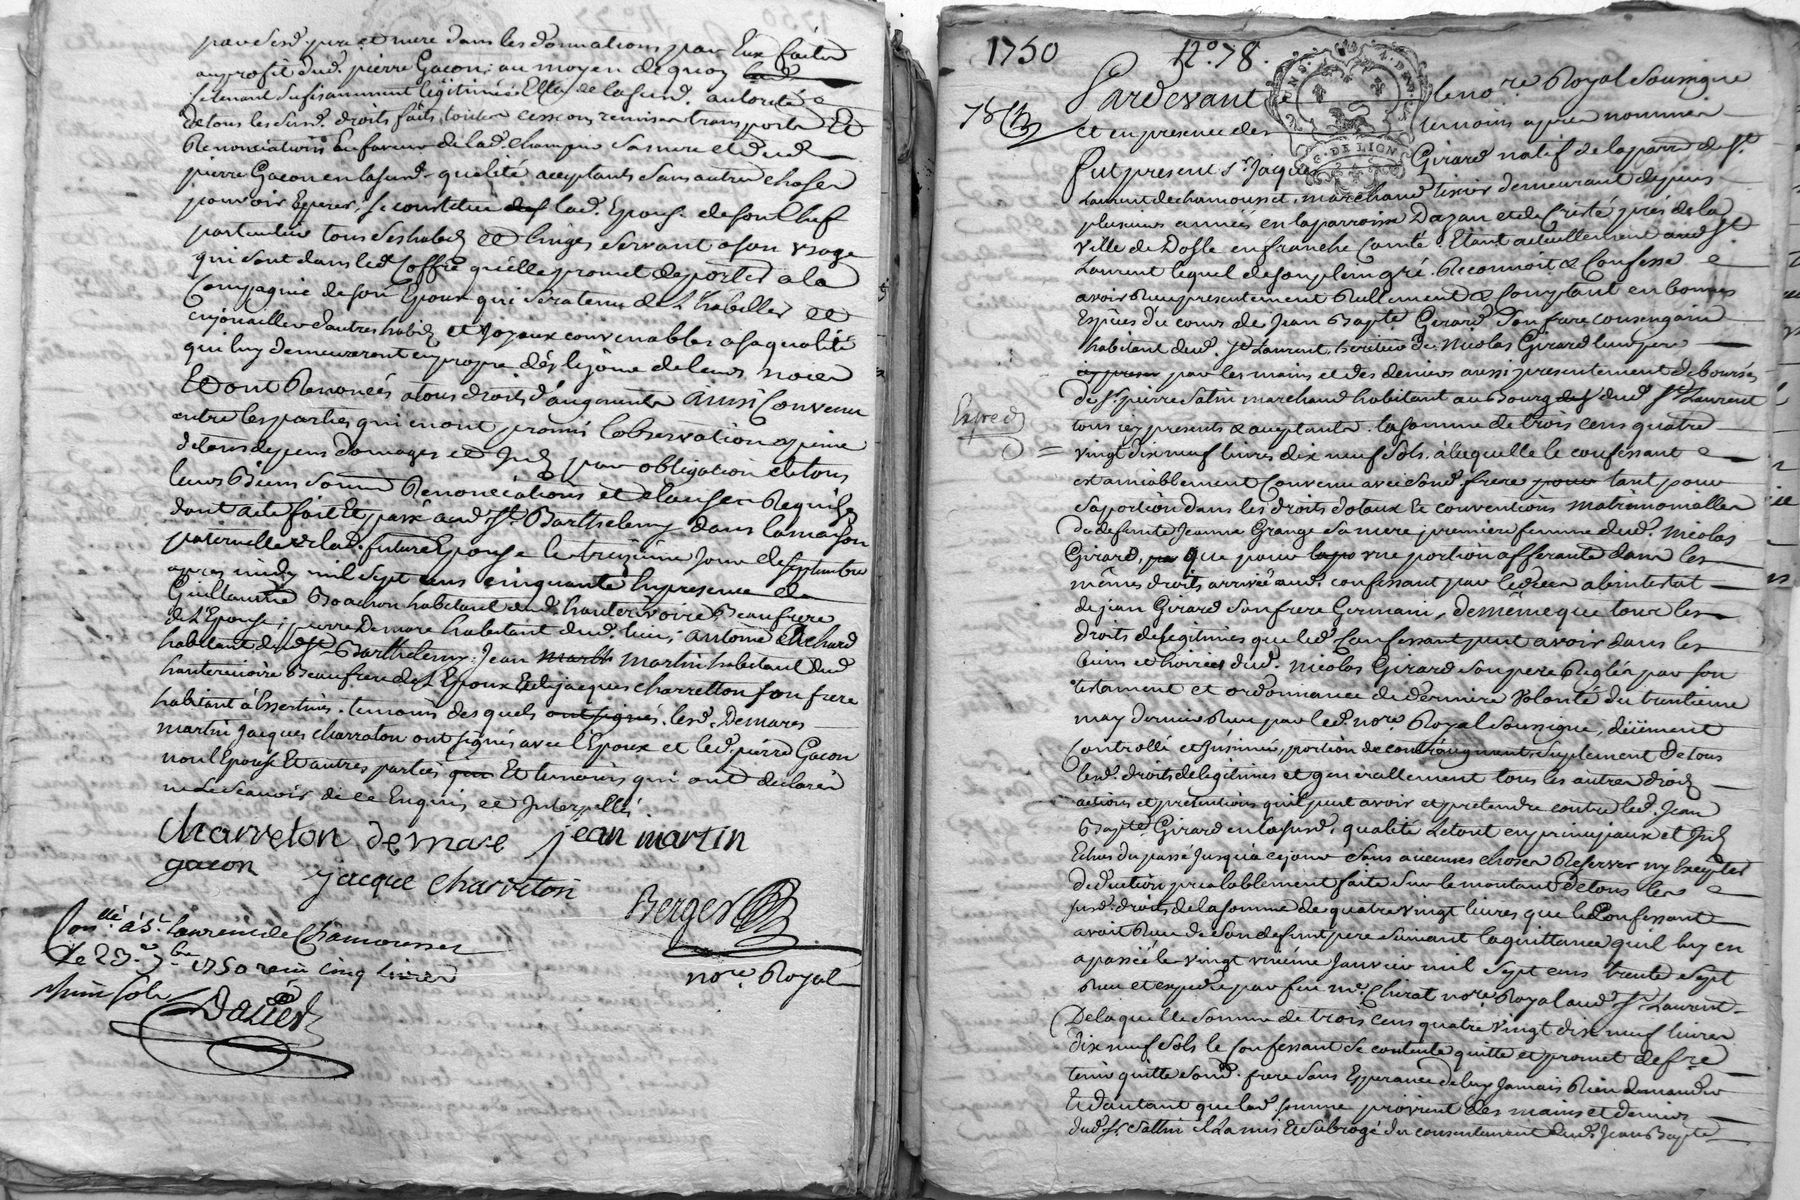 par sesd. pere et mere dans les donnations par Eux faites
au profit dud. pierre Gacon, au moyen de quoy
se tenant sufisamment legitimée Elle de lasusd. autorité
de tous lesd. droits fait toutes cessions remises transports Et
Renonciations En faveur de lad. Champier sa mere et dud.
pierre Gacon en lasusd. qualité acceptants sans autres choses
pouvoir Esperer, se constitue lad. Epouse de son chef
particulier tous ses habits et linges servant a son usage
qui sont dans led. Coffre qu'elle promet de porter a la
Compagnie de son Epoux qui sera tenu de L'habiller et
enjouailler d'autres habits et joyaux convenables a sa qualité
qui luy demeureront en propre dés le jour de leurs noces
Et ont Renoncés a tous droits d'augments Ainsi Convenu
entre les parties qui en ont promis l'observation a peine
de tous depens domages et Int. par obligation de tous
leurs Biens soum. Renonciations et clauses Requises
dont acte fait Et passé aud. St. Barthelemy dans la maison
paternelle de lad. future Epouse le treizieme jour de septembre
apres midy mil sept cens cinquante En presence de
Guillaume Boachon habitant aud. hauterivoire Beaufrere
de L'Epouse, pierre Demare habitant dud. lieu, antoine Richard
habitant dud. St. Barthelemy, Jean martin habitant dud.
hauterivoire Beaufrere de L'Epoux Et de jacques charretton son frere
habitant à Essertines. temoins desquels lesd. Demares
martin jacques charraton ont signés avec l'Epoux et led. pierre Gacon
non l'Epouse Et autres parties Et temoins qui ont declarés
ne le scavoir de ce Enquis et Interpellés
charreton demare jean martin
gacon jacque Charreton
Berger
nore. Royal
Conlé. à St. Laurent de Chamousset
Le 23. 7bre 1750 reçu cinq livres
huit sols
1750 No. 78.
78
Pardevant le nore. Royal soussigné
et en presence des temoins apres nommés
fut present Sr. Jacques Girard natif de la parre. de St.
Laurent de chamousset, marchand tixier demeurant depuis
plusieurs années en la parroisse Dazan et de Cristé près de la
ville de Dosle en franche Comté Etant actuellement aud. St.
Laurent lequel de son plein gré Reconnoit & Confesse
avoir Reçu presentement Reellement & Comptant en bonnes
Espèces du cours de Jean Bapte. Girard son frere consenguin
habitant dud. St. Laurent, heritier de Nicolas Girard leur pere
par les mains et des deniers aussi presentement deboursés
de Sr. pierre Satin marchand habitant au Bourg dud. St. Laurent
tous icy presents & acceptants. la somme de trois cens quatre
vingt dix neuf livres dix neuf sols, à laquelle le confessant
est amiablement Convenu avec sond. frere tant pour
sa portion dans les droits dotaux & conventions matrimonialles
de defunte Jeanne Grange sa mere premiere femme dud. Nicolas
Girard, que pour une portion afferante dans les
mêmes droits arrivée aud. confessant par le deces abintestat
de jean Girard son frere Germain, de même que tous les
droits de legitimes que led. Confessant peut avoir dans les
biens et hoiries dud. Nicolas Girard son pere Reglés par son
testament et ordonnance de derniere volonté du trentieme
may dernier Reçu par led. nore. Royal soussigné, düement
Controllé et insinué, portion de suplement de tous
lesd. droits de legitimes et generallement tous les autres droits
actions et pretentions qu'il peut avoir et pretendre contre led. Jean
Bapte. Girard en lasusd. qualité Le tout en principaux et Int.
Echus du passé jusqu'a ce jour sans aucunes choses Reserver ny Excepter
deduction prealablement faite sur le montant de tous les
susd. droits de la somme de quatre vingt livres que le Confessant
avoit Reçu de son defunt pere suivant la quittance qu'il luy en
a passée le vingt Janvier mil sept cens trente sept
Reçu et expedié par feu me. Chirat nore. Royal aud. St. Laurent
De laquelle somme de trois cens quatre vingt dix neuf livres
dix neuf sols le Confessant se contente quitte et promet de fre.
tenir quitte sond. frere sans Esperance de luy jamais Rien demander
Et d'autant que lad. somme provient des mains et deniers
dud. Sr. Sattin Il La mis Et subrogé du consentement dud. Jean Bapte.